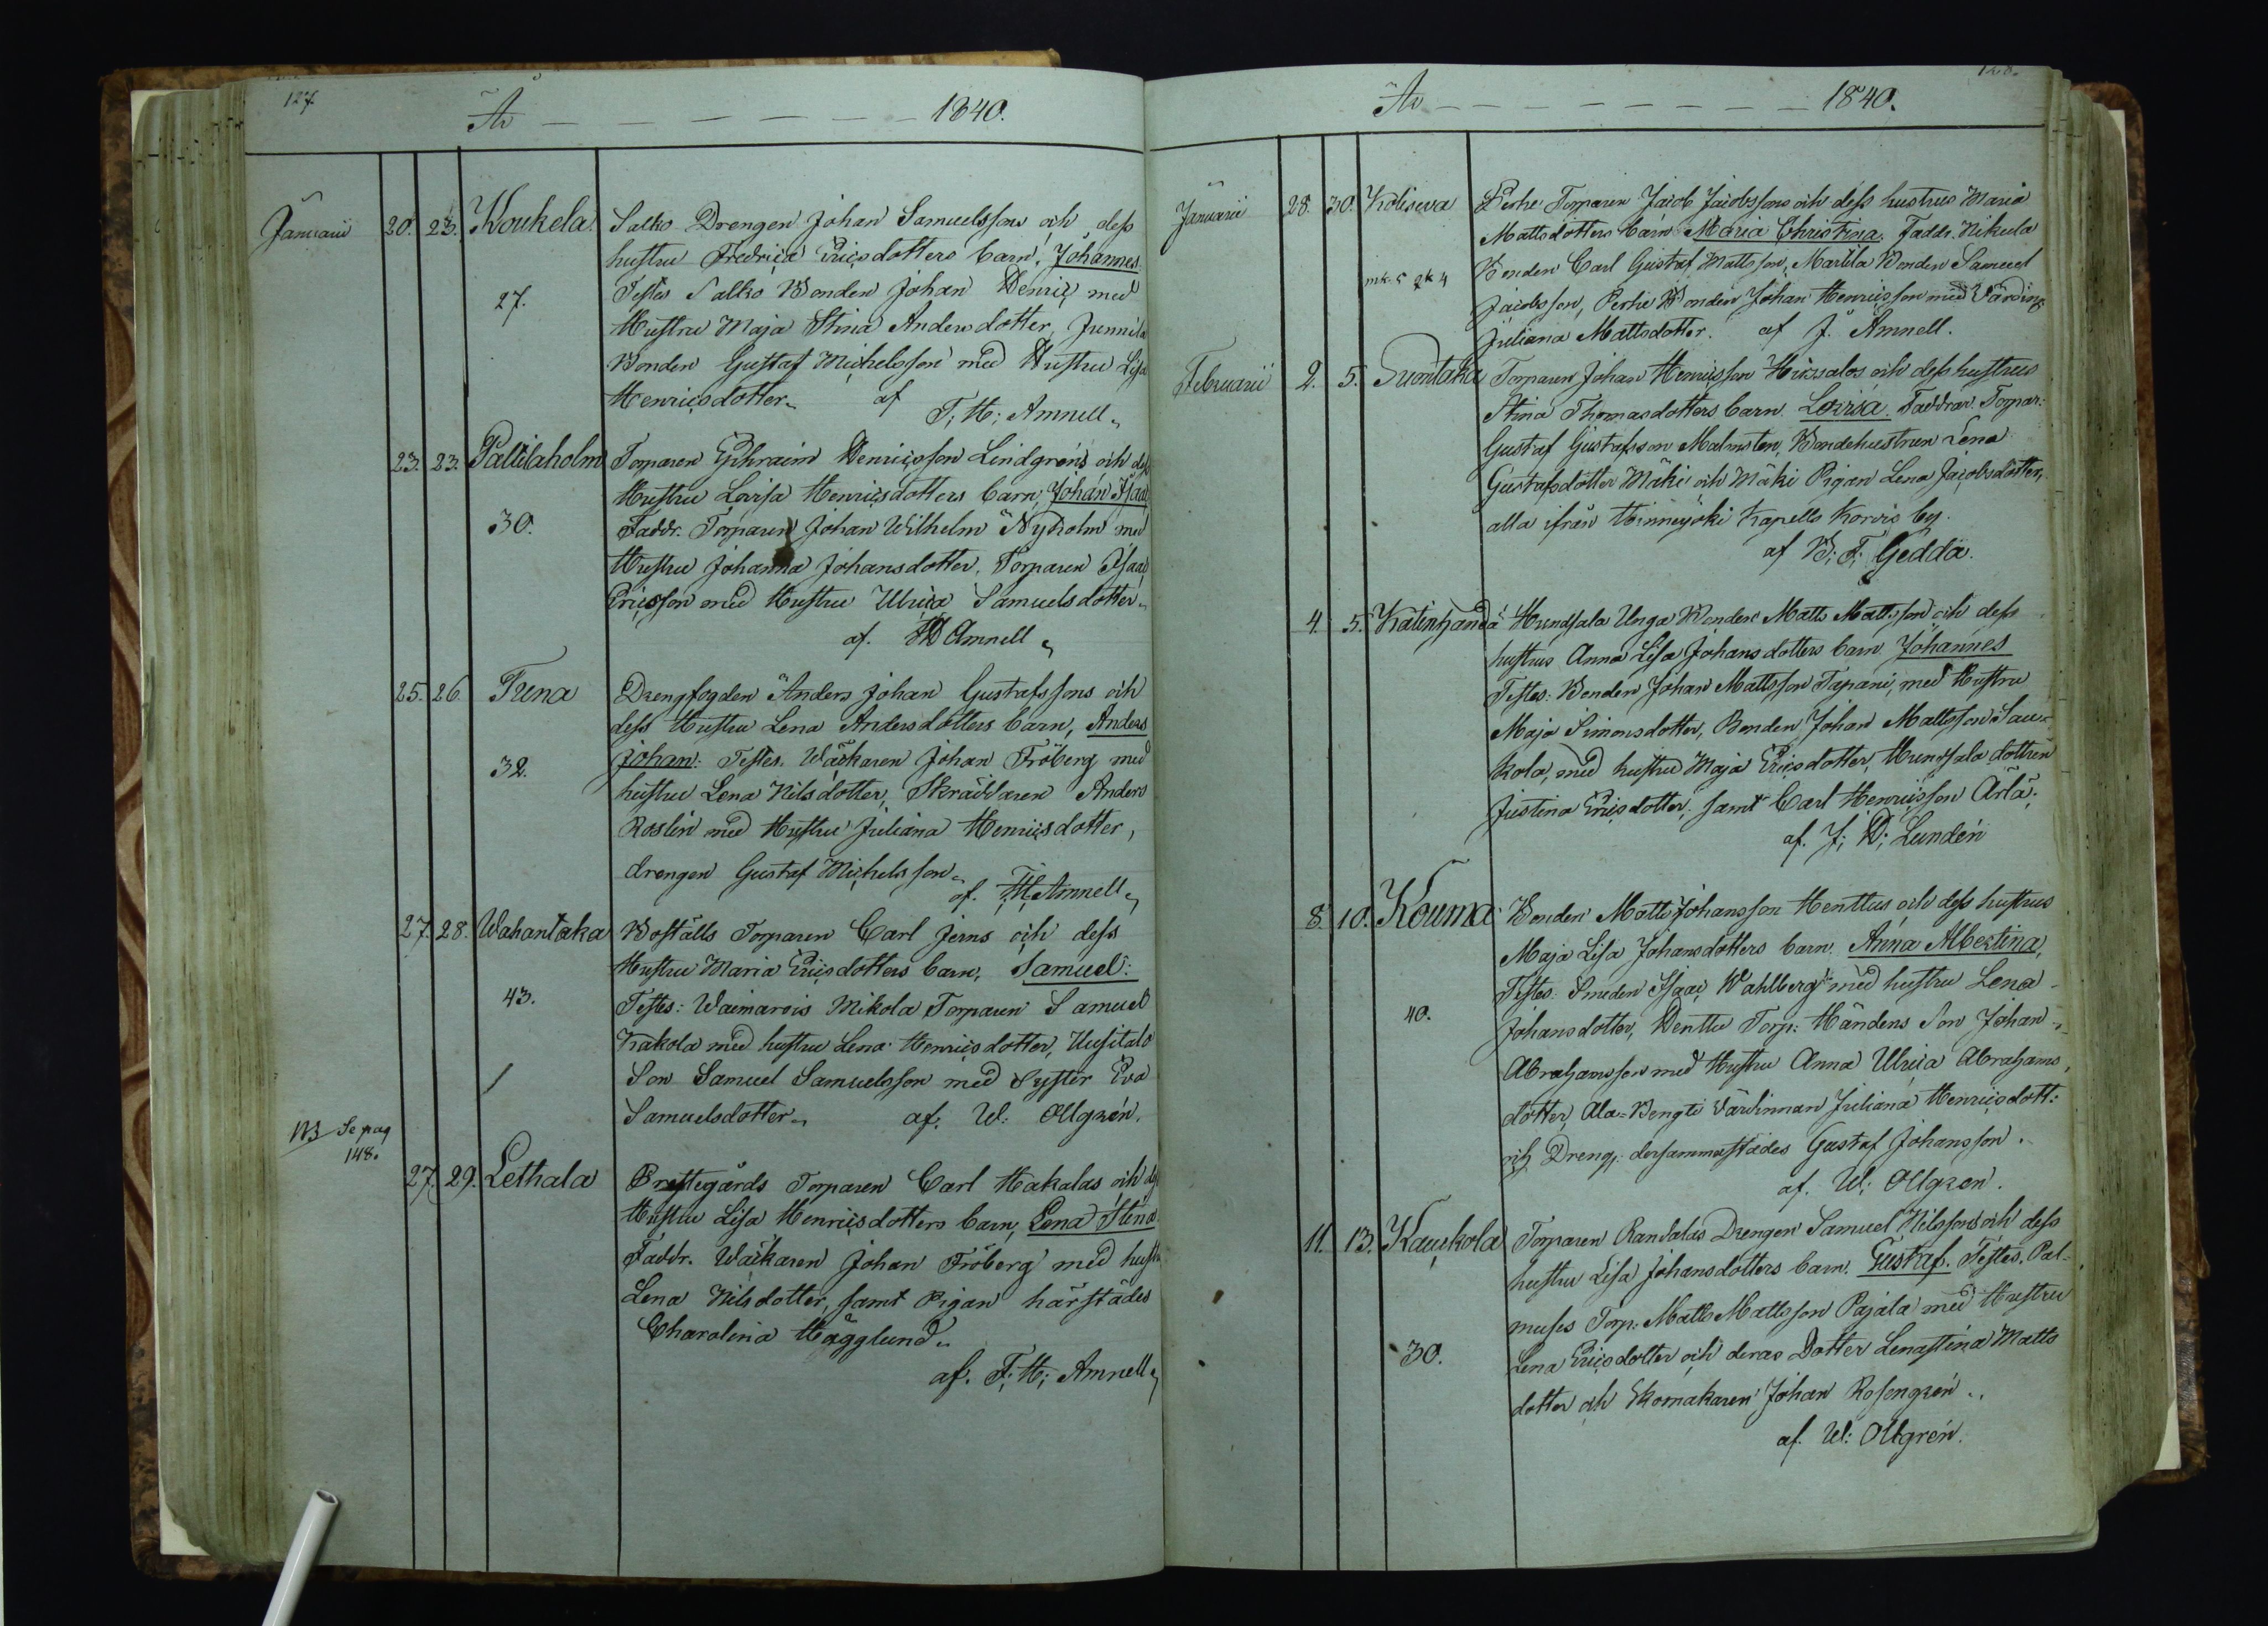 127.
År — — — — — — — — 1840.
Januarii 20. 23. Koukela. Salko Drengen Johan Samuelssons och dess
hustru Fredrica Ericsdotters barn, Johannes.
27. Testes Salko Bonden Johan Henric med
Hustru Maja Stina Andersdotter, Junnila
Bonden Gustaf Michelsson med Hustru Lisa
Henricsdotter. af
F; H; Amnell.
23. 23. Paltilaholm Torparen Ephraim Henricsson Lindgrens och dess
Hustru Lovisa Henricsdotters barn, Johan Isaac
30. Faddr. Torparen Johan Wilhelm Nyholm med
Hustru Johanna Johansdotter, Torparen Isaac
Ericsson med Hustru Ulrica Samuelsdotter.
af. Amnell.
25. 26. Trena Drengfogden Anders Johan Gustafssons och
dess Hustru Lena Andersdotters barn, Anders
Johan: Testes. Wäckaren Johan Fröberg med
32. hustru Lena Nilsdotter, Skräddaren Anders
Roslin med Hustru Juliana Henricsdotter,
drengen Gustaf Michelsson.
af. F. H. Amnell.
27. 28. Wahantaka Boställs Torparen Carl Jerns och dess
Hustru Maria Ericsdotters barn, Samuel:
43. Testes: Waimarois Mikola Torparen Samuel
Kakola med hustru Lena Henricsdotter, Uusitalo
Son Samuel Samuelsson med Syster Eva
Samuelsdotter. af. W: Ollgrén.
NB Se pag
148.
27. 29. Lethala Prestegårds Torparen Carl Hakalas och dess
Hustru Lisa Henricsdotters barn, Lena Stina.
Faddr. Wäckaren Johan Fröberg med hustru
Lena Nilsdotter, samt Pigan härstädes
Charolina Hägglund.
af. F; H; Amnell.
128.
År — — — — — — — — 1840.
Januarii 28. 30. Koliseva Perhe Torparen Jacob Jacobssons och dess hustrus Maria
Mattsdotters barn Maria Christina. Faddr. Nikula
mk. 5 qk 4 Bonden Carl Gustaf Mattsson, Marttila Bonden Samuel
Jacobsson, Perhe Bonden Johan Henricsson med Värding
Juliana Mattsdotter. af J. Amnell.
Februarii 2. 5. Suontaka Torparen Johan Henricsson Hirsalos och dess hustrus
Stina Thomasdotters barn Lovisa. Faddrar. Torpar:
Gustaf Gustafsson Malmsten, Bondehustrun Lena
Gustafsdotter Mäki och Mäki Pigan Lena Jacobsdotter,
alla ifrån Hinnerjoki Kapells Korvis by.
af B; F; Gedda.
4. 5. Kalinhanda Hundsala Unga Bonden Matts Mattsson och dess
hustrus Anna Lisa Johansdotters barn. Johannes
Testes: Bonden Johan Mattsson Tapani, med Hustru
Maja Simonsdotter, Bonden Johan Mattsson Sau-
kola, med hustru Maja Ericsdotter, Hundsala dottren
Justina Ericsdotter, samt Carl Henricsson Ärlä;
af. J; D; Lundén
8. 10. Kouma Bonden Matts Johansson Henttus och dess hustrus
Maja Lisa Johansdotters barn. Anna Albertina,
Testes: Smeden Isaac Wahlberg med hustru Lena
40. Johansdotter, Henttu Torp: Händens Son Johan
Abrahamsson med Hustru Anna Ulrica Abrahams
dotter, Ala-Bengti Värdinnan Juliana Henricsdott:
och Dreng: dersammastädes Gustaf Johansson.
af. W; Ollgren.
11. 13. Kauckola Torparen Randalas Drengen Samuel Nilssons och dess
hustru Lisa Johansdotters barn. Gustaf. Testes. Pal-
muses Torp: Matts Mattsson Pajala med Hustru
30. Lena Ericsdotter och deras Dotter Lenastina Matts
dotter och Skomakaren Johan Rosengrén.
af. W: Ollgrén.